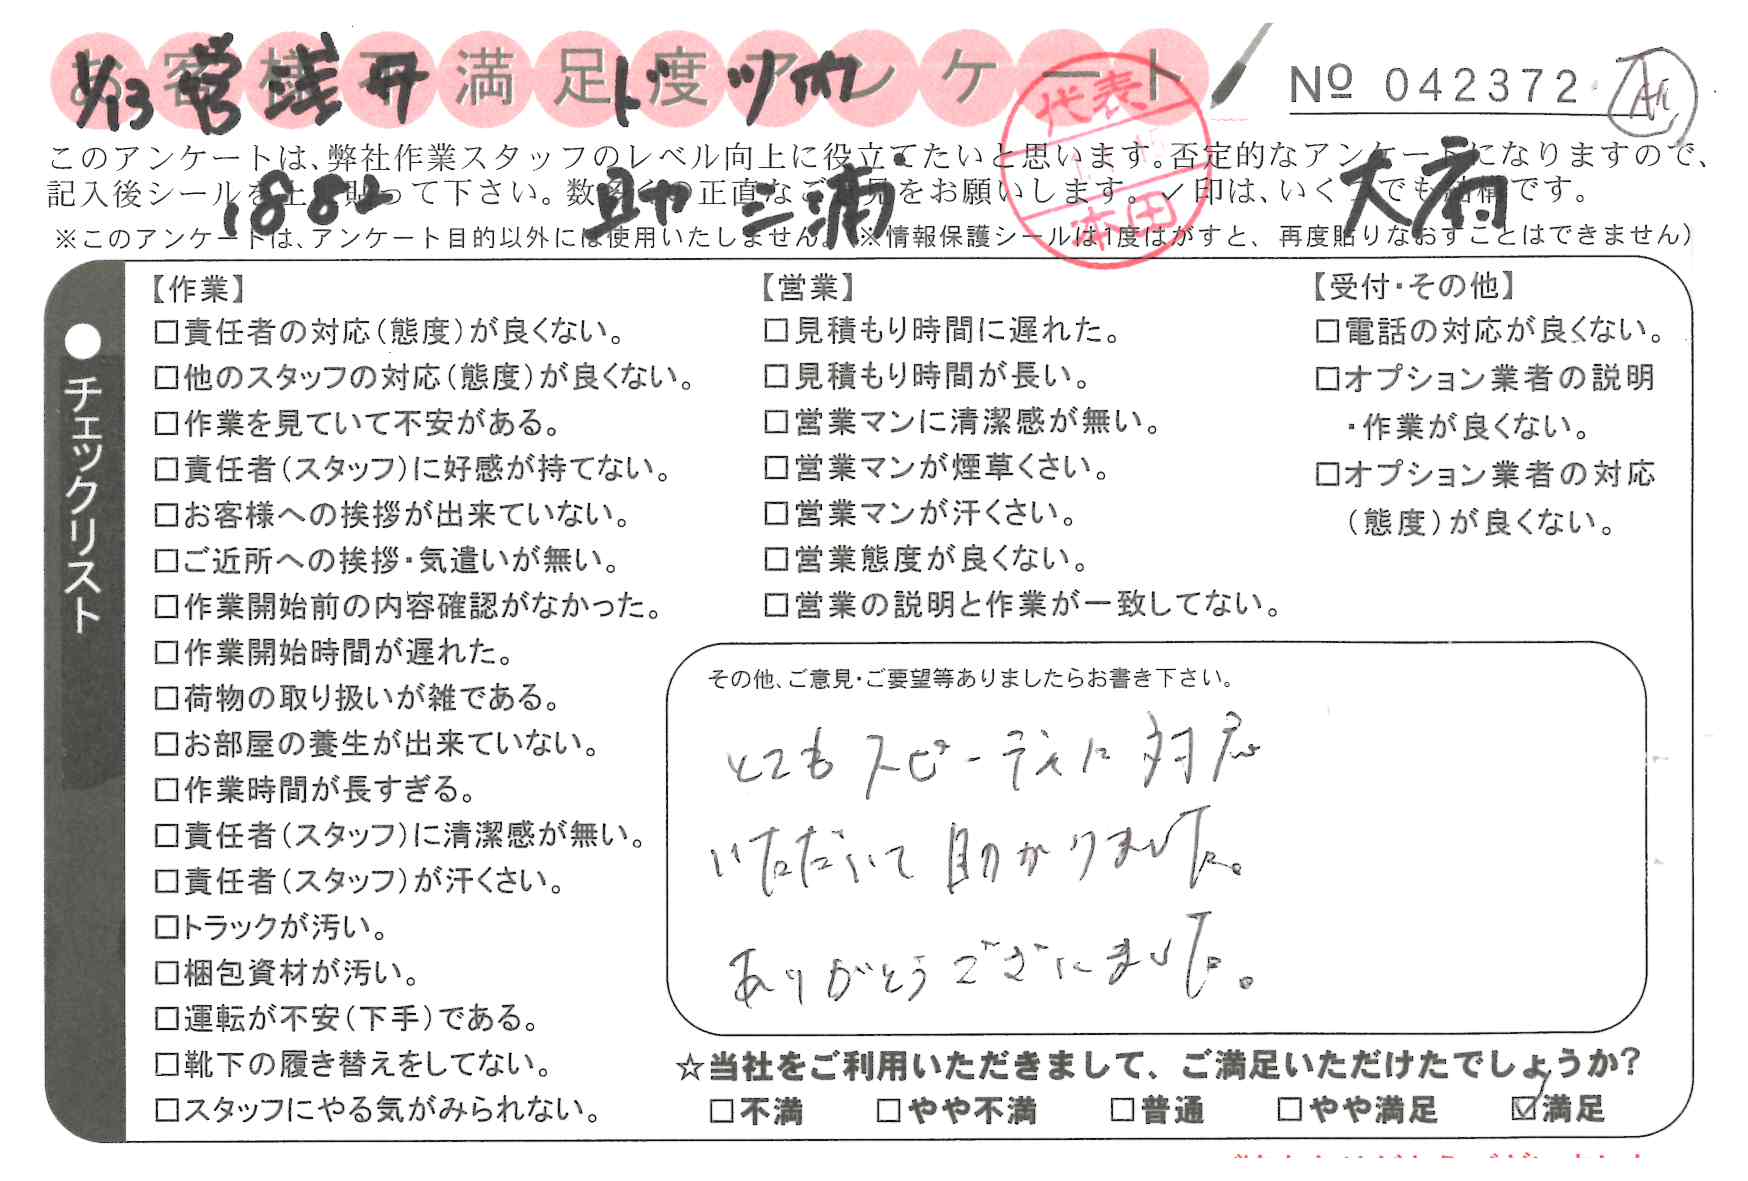 お客様不満足度アンケート
1/13 営 浅井 ド ツボ
No 042372
このアンケートは、弊社作業スタッフのレベル向上に役立てたいと思います。否定的なアンケートになりますので、
記入後シールを上に貼って下さい。数多くの正直なご意見をお願いします。✓印は、いくつでも結構です。
1882 助 三浦 大府
代表
本田
※このアンケートは、アンケート目的以外には使用いたしません。(※情報保護シールは1度はがすと、再度貼りなおすことはできません)
●チェックリスト
【作業】
□責任者の対応(態度)が良くない。
□他のスタッフの対応(態度)が良くない。
□作業を見ていて不安がある。
□責任者(スタッフ)に好感が持てない。
□お客様への挨拶が出来ていない。
□ご近所への挨拶・気遣いが無い。
□作業開始前の内容確認がなかった。
□作業開始時間が遅れた。
□荷物の取り扱いが雑である。
□お部屋の養生が出来ていない。
□作業時間が長すぎる。
□責任者(スタッフ)に清潔感が無い。
□責任者(スタッフ)が汗くさい。
□トラックが汚い。
□梱包資材が汚い。
□運転が不安(下手)である。
□靴下の履き替えをしてない。
□スタッフにやる気がみられない。
【営業】
□見積もり時間に遅れた。
□見積もり時間が長い。
□営業マンに清潔感が無い。
□営業マンが煙草くさい。
□営業マンが汗くさい。
□営業態度が良くない。
□営業の説明と作業が一致してない。
【受付・その他】
□電話の対応が良くない。
□オプション業者の説明
・作業が良くない。
□オプション業者の対応
(態度)が良くない。
その他、ご意見・ご要望等ありましたらお書き下さい。
とてもスピーディに対応
いただいて助かりました。
ありがとうございました。
☆当社をご利用いただきまして、ご満足いただけたでしょうか?
□不満 □やや不満 □普通 □やや満足 ☑満足